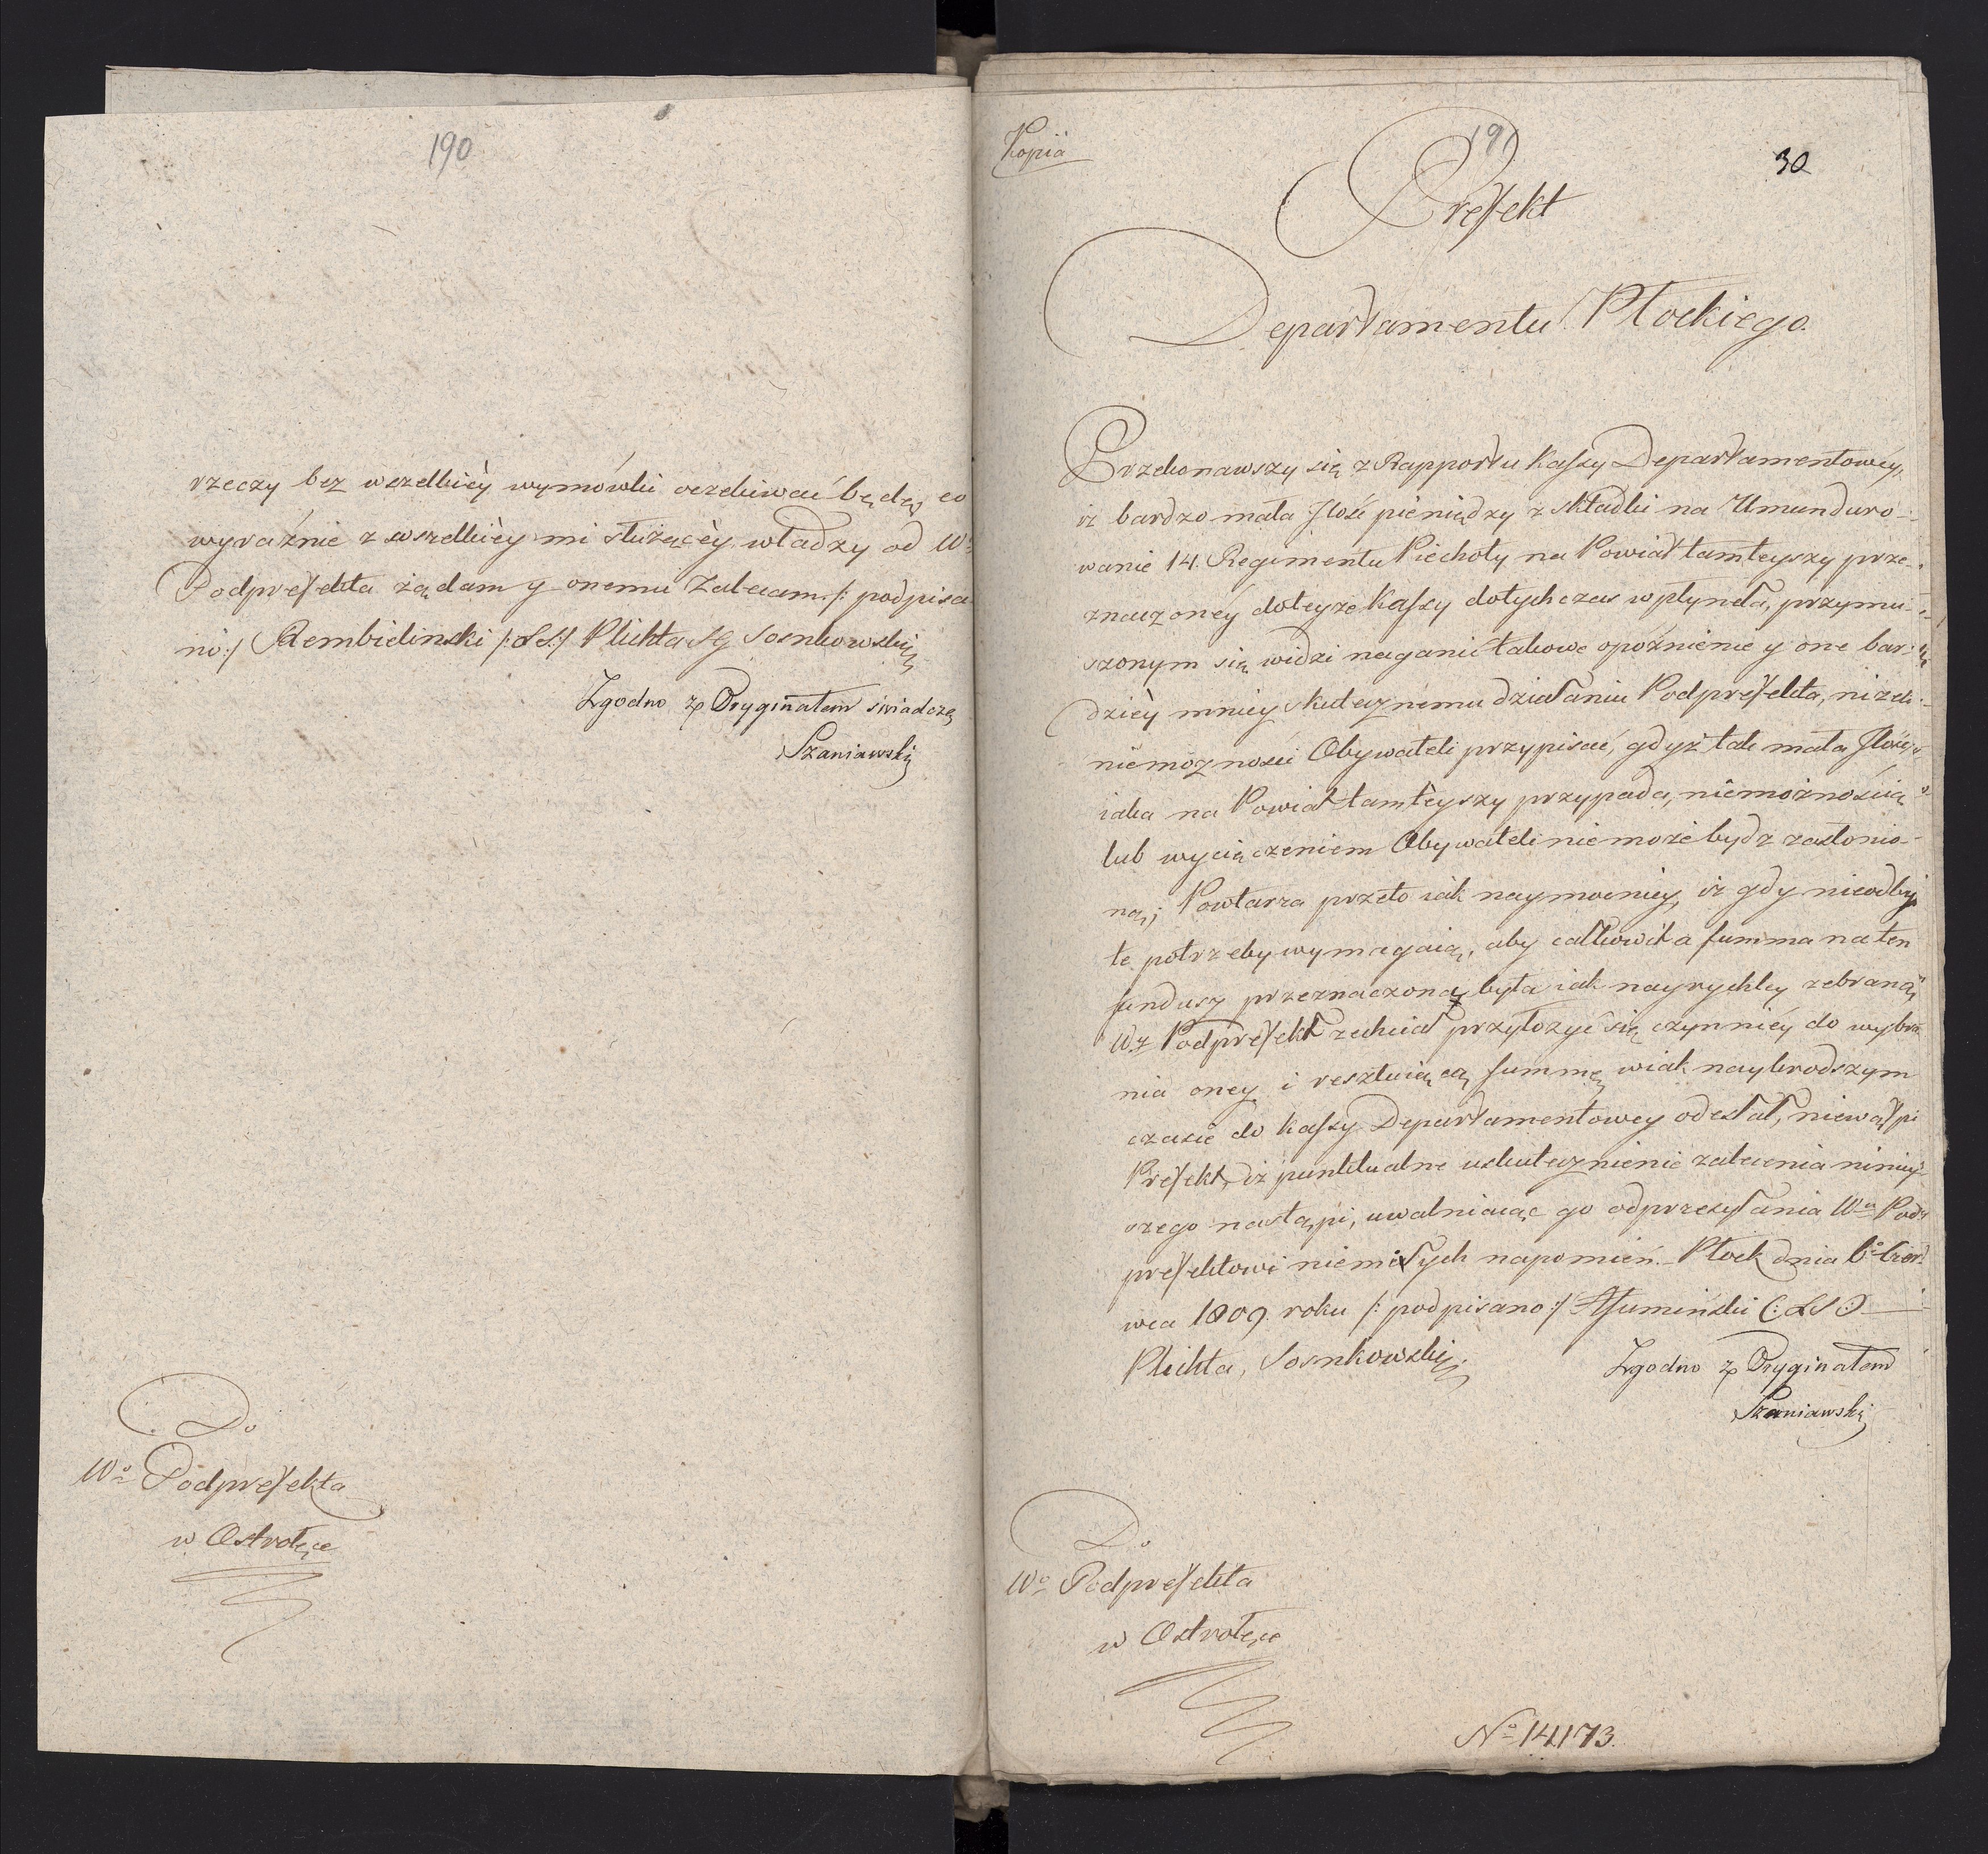 190
rzeczy bez wszelkiéy wymówki oczekiwać będę, co
wyraźnie z wszelkiéy mi służącéy władzy od Wo
Podprefekta żądam y onemu zalecam /: podpisa
no :/ Rembielinski /: LS :/ Plichta SG Sosnkowski
Zgodno z Oryginałem świadczę
Szaniawski
Do
Wo Podprefekta
w Ostrołęce
Kopia
191
30
Prefekt
Departamentu Płockiego.
Przekonawszy się z Rapportu Kassy Departamentowéy,
iż bardzo mała Ilość pieniędzy z składki na Umunduro-
wanie 14. Regimentu Piechoty na Powiat tamteyszy prze-
znaczonéy do teyże Kassy dotychczas wpłyneła, przymu-
szonym się widzi naganić takowe opóźnienie y one bar-
dziéy mniéy skutecznemu działaniu Podprefekta, niżeli
niemożności Obywateli przypisać, gdyż tak mała Ilość,
iaka na Powiat tamteyszy przypada, niemożnością
lub wycięczeniem Obywateli nie może bydź zasłonio-
ną; Powtarza przeto iak naymocniéy, iż gdy nieodby
te potrzeby wymagaią, aby całkowita summa na ten
fundusz przeznaczona była iak nayrychléy zebraną,
Wy Podprefekt zechciał przyłożyć się czynniéy do wybra
nia onéy i resztuiącą summę w iak naykrodszym
czasie do Kassy Departamentowey odesłał, niewątpi
Prefekt, iż punktualne uskutecznienie zalecenia niniey-
szego nastąpi, uwalniaiąc go od przesyłania Wu Pod-
prefektowi niemiłych napomień. Płock dnia 6o Czer-
wca 1809. roku /: podpisano :/ Jłumiński (: LS :)
Plichta, Sosnkowski
Zgodno z Oryginałem
Szaniawski
Do
Wo Podprefekta
w Ostrołęce
No 14173.